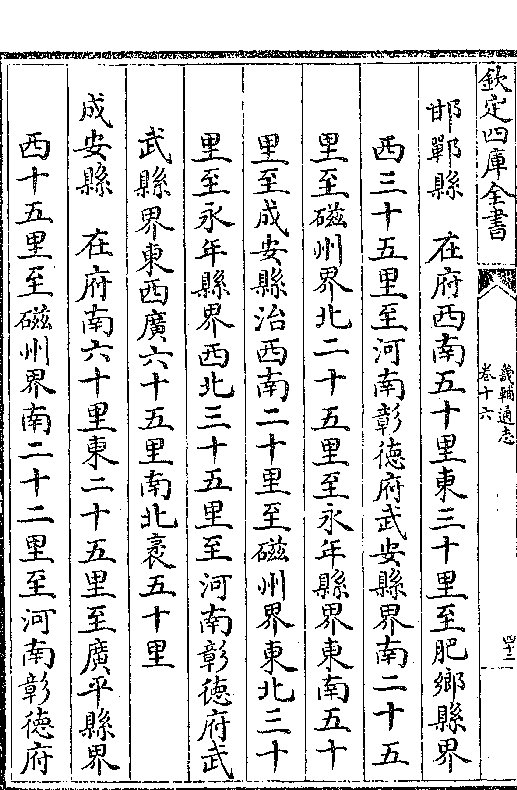 欽定四庫全書
畿輔通志
卷十六
四十二
邯鄲縣 在府西南五十里東三十里至肥鄉縣界
西三十五里至河南彰德府武安縣界南二十五
里至磁州界北二十五里至永年縣界東南五十
里至成安縣治西南二十里至磁州界東北三十
里至永年縣界西北三十五里至河南彰德府武
武縣界東西廣六十五里南北袤五十里
成安縣 在府南六十里東二十五里至廣平縣界
西十五里至磁州界南二十二里至河南彰德府